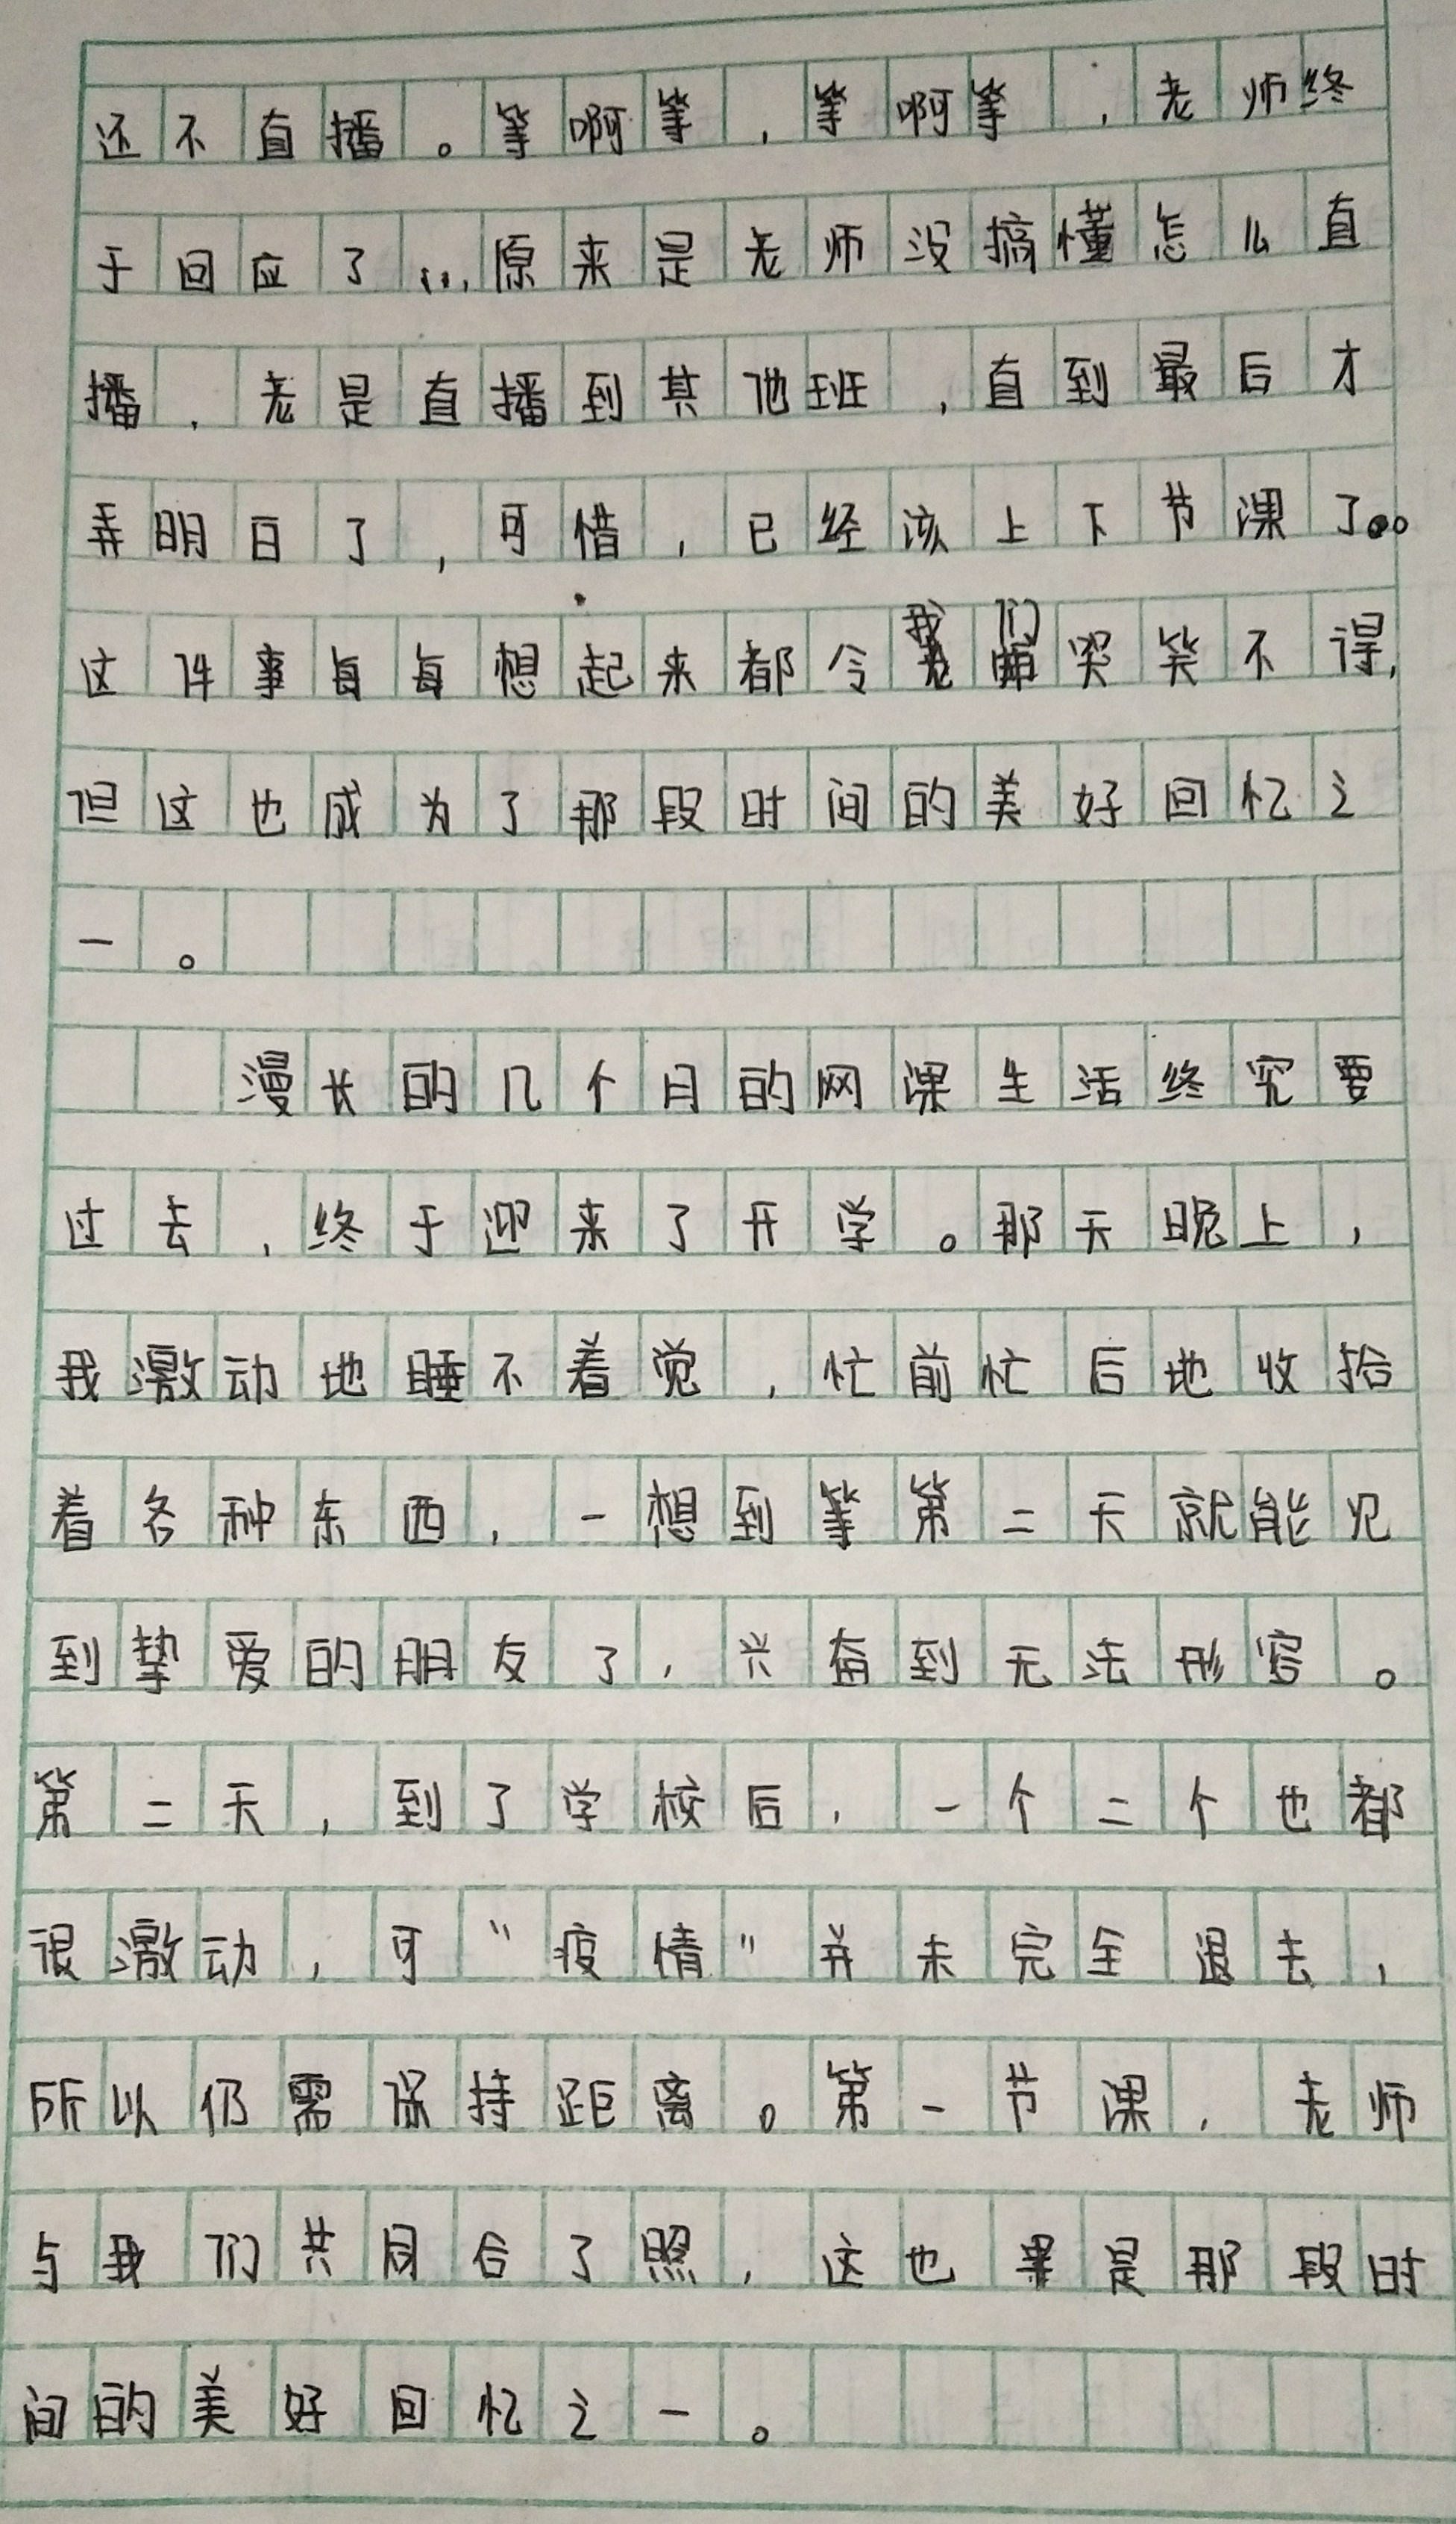 还不直播。等啊等，等啊等，老师终
于回应了…原来是老师没搞懂怎么直
播，老是直播到其他班，直到最后才
弄明白了，可惜，已经该上下节课了。
这件事每每想起来都令我们哭笑不得，
但这也成为了那段时间的美好回忆之
一。
漫长的几个月的网课生活终究要
过去，终于迎来了开学。那天晚上，
我激动地睡不着觉，忙前忙后地收拾
着各种东西，一想到等第二天就能见
到挚爱的朋友了，兴奋到无法形容。
第二天，到了学校后，一个二个也都
很激动，可"疫情"并未完全退去，
所以仍需保持距离。第一节课，老师
与我们共同合了照，这也是那段时
间的美好回忆之一。